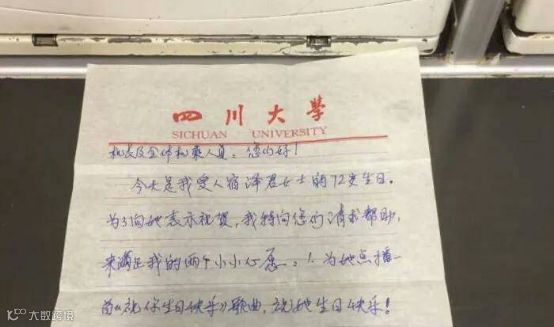 四川大學
SICHUAN UNIVERSITY
机长及全体机乘人员：您们好！
今天是我爱人宿泽君女士的72岁生日。
为了向她表示祝贺，我特向您们请求帮助，
来满足我的两个小小心愿。1. 为她点播一
首《祝你生日快乐》歌曲，祝她生日快乐！
大数跨境